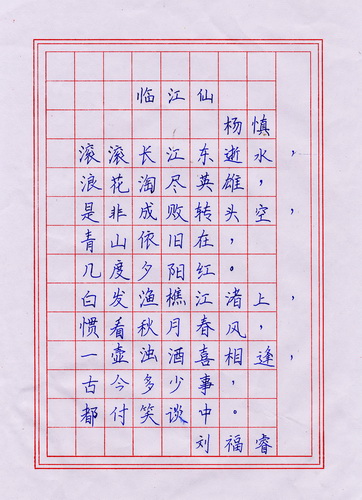 临江仙
杨慎
滚滚长江东逝水，
浪花淘尽英雄，
是非成败转头空，
青山依旧在，
几度夕阳红。
白发渔樵江渚上，
惯看秋月春风，
一壶浊酒喜相逢，
古今多少事，
都付笑谈中。
刘福睿